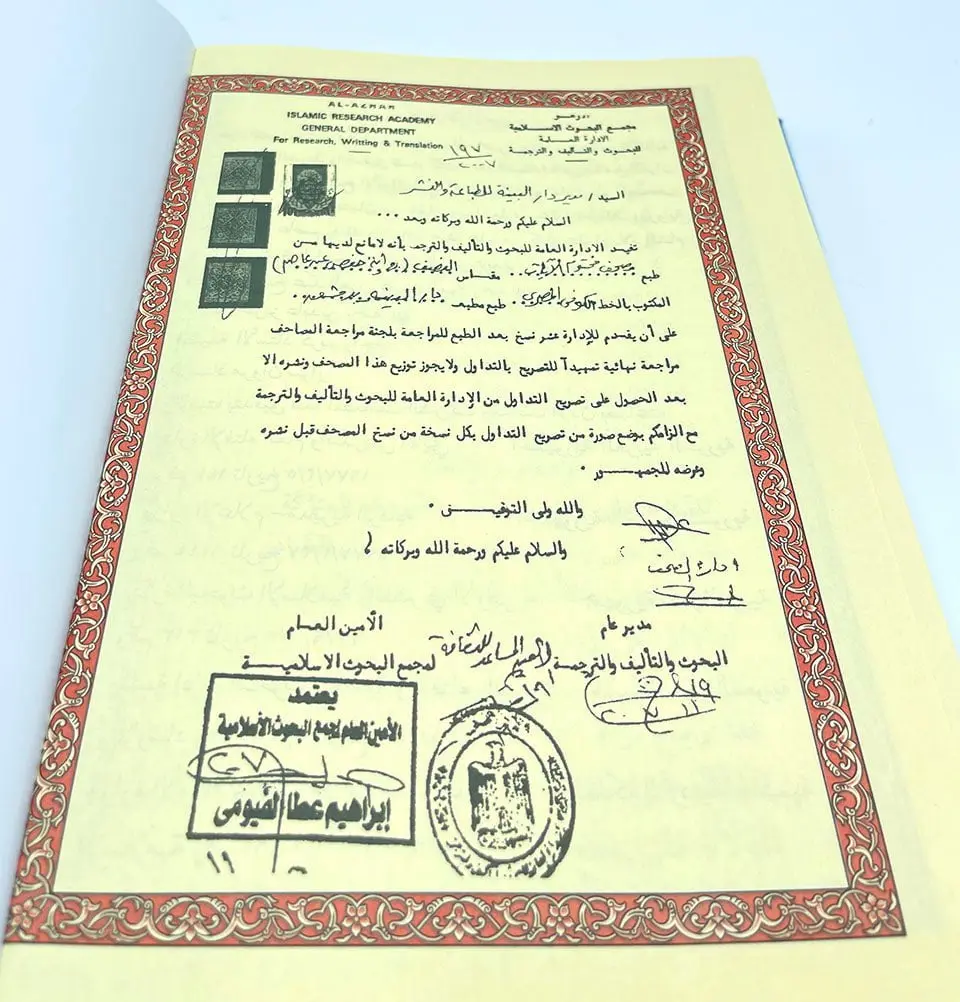 AL-AZHAR
ISLAMIC RESEARCH ACADEMY
GENERAL DEPARTMENT
For Research, Writting & Translation
الأزهر
مجمع البحوث الاسلامية
الادارة العامة
للبحوث والتأليف والترجمة
١٩٧
٢٠٠٧
السيد / مدير دار البينة للطباعة والنشر
السلام عليكم ورحمة الله وبركاته وبعد ...
تفيد الادارة العامة للبحوث والتأليف والترجمة بأنه لامانع لديها من
طبع مقاس النصف (رواية حفص عن عاصم)
المكتوب بالخط طبع مطبعة
على أن يقدم للإدارة عشر نسخ بعد الطبع للمراجعة بلجنة مراجعة المصاحف
مراجعة نهائية تمهيداً للتصريح بالتداول ولايجوز توزيع هذا المصحف ونشره الا
بعد الحصول على تصريح التداول من الإدارة العامة للبحوث والتأليف والترجمة
مع الزامكم بوضع صورة من تصريح التداول بكل نسخة من نسخ المصحف قبل نشره
وعرضه للجمهور ٠
والله ولى التوفيق ٠
والسلام عليكم ورحمة الله وبركاته /
مدير عام
البحوث والتأليف والترجمة
الأمين العام المساعد للثقافة
الأمين العام
لمجمع البحوث الاسلامية
يعتمد
الأمين العام لمجمع البحوث الأسلامية
إبراهيم عطا الفيومى